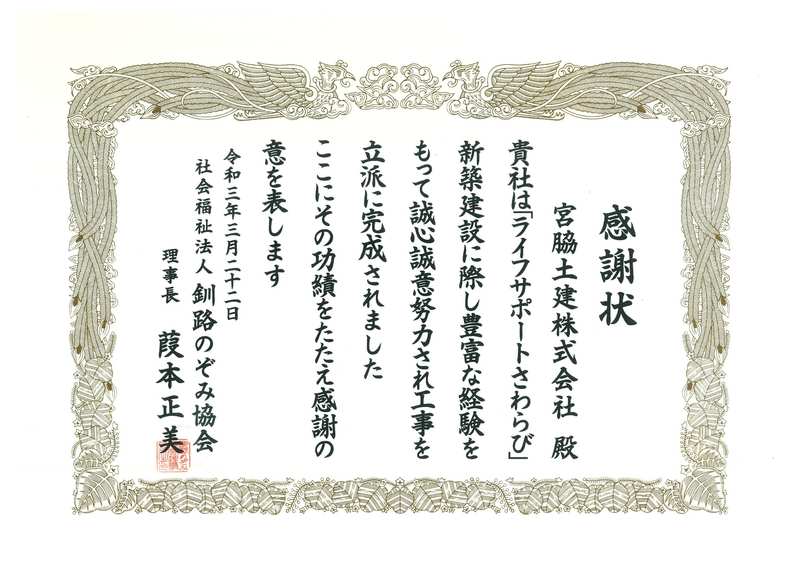 感謝状
宮脇土建株式会社 殿
貴社は「ライフサポートさわらび」
新築建設に際し豊富な経験を
もって誠心誠意努力され工事を
立派に完成されました
ここにその功績をたたえ感謝の
意を表します
令和三年三月二十二日
社会福祉法人 釧路のぞみ協会
理事長 葭本正美